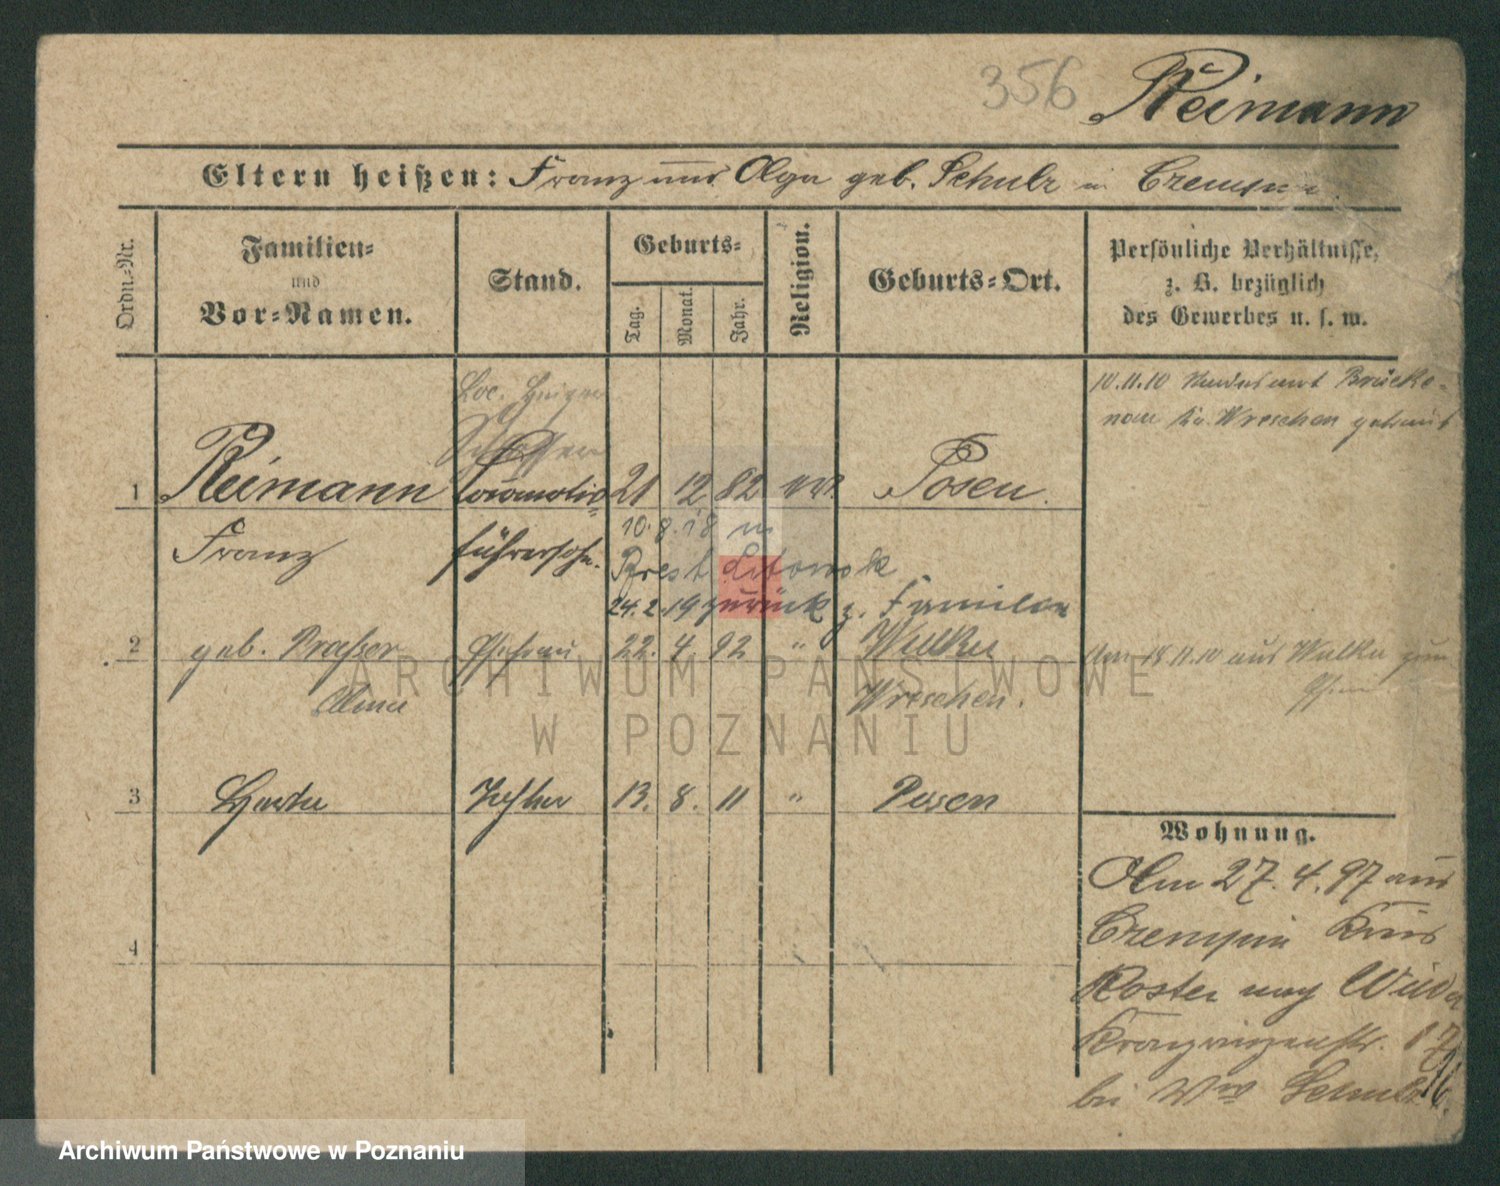 356 Reimann
Eltern heißen: Franz und Olga geb. Schulz in Czempin
Ordn.-Nr.
Familien-
und
Vor-Namen.
Stand.
Geburts-
Tag.
Monat.
Jahr.
Religion.
Geburts-Ort.
Persönliche Verhältnisse,
z. B. bezüglich
des Gewerbes u. s. w.
Loc. Heizer
Schlosser
10.11.10 Standesamt Brücke-
nau Kr. Wreschen getraut
1 Reimann Locomotiv- 21 12 82 Posen.
Franz führersohn.
10.8.18 in
Brest Litowsk
24.2.19 zurück z. Familie
2 geb. Ehefrau 22. 4. 92 " Wulka
Anna Wreschen.
Am 18.11.10 aus Wulka zum
3 Herta Tochter 13. 8. 11 " Posen
4
Wohnung.
Am 27.4.97 aus
Czempin Kreis
Kosten nach Wilda
Kronprinzenstr. 17
bei Ww Schulz
ARCHIWUM PAŃSTWOWE
W POZNANIU
Archiwum Państwowe w Poznaniu